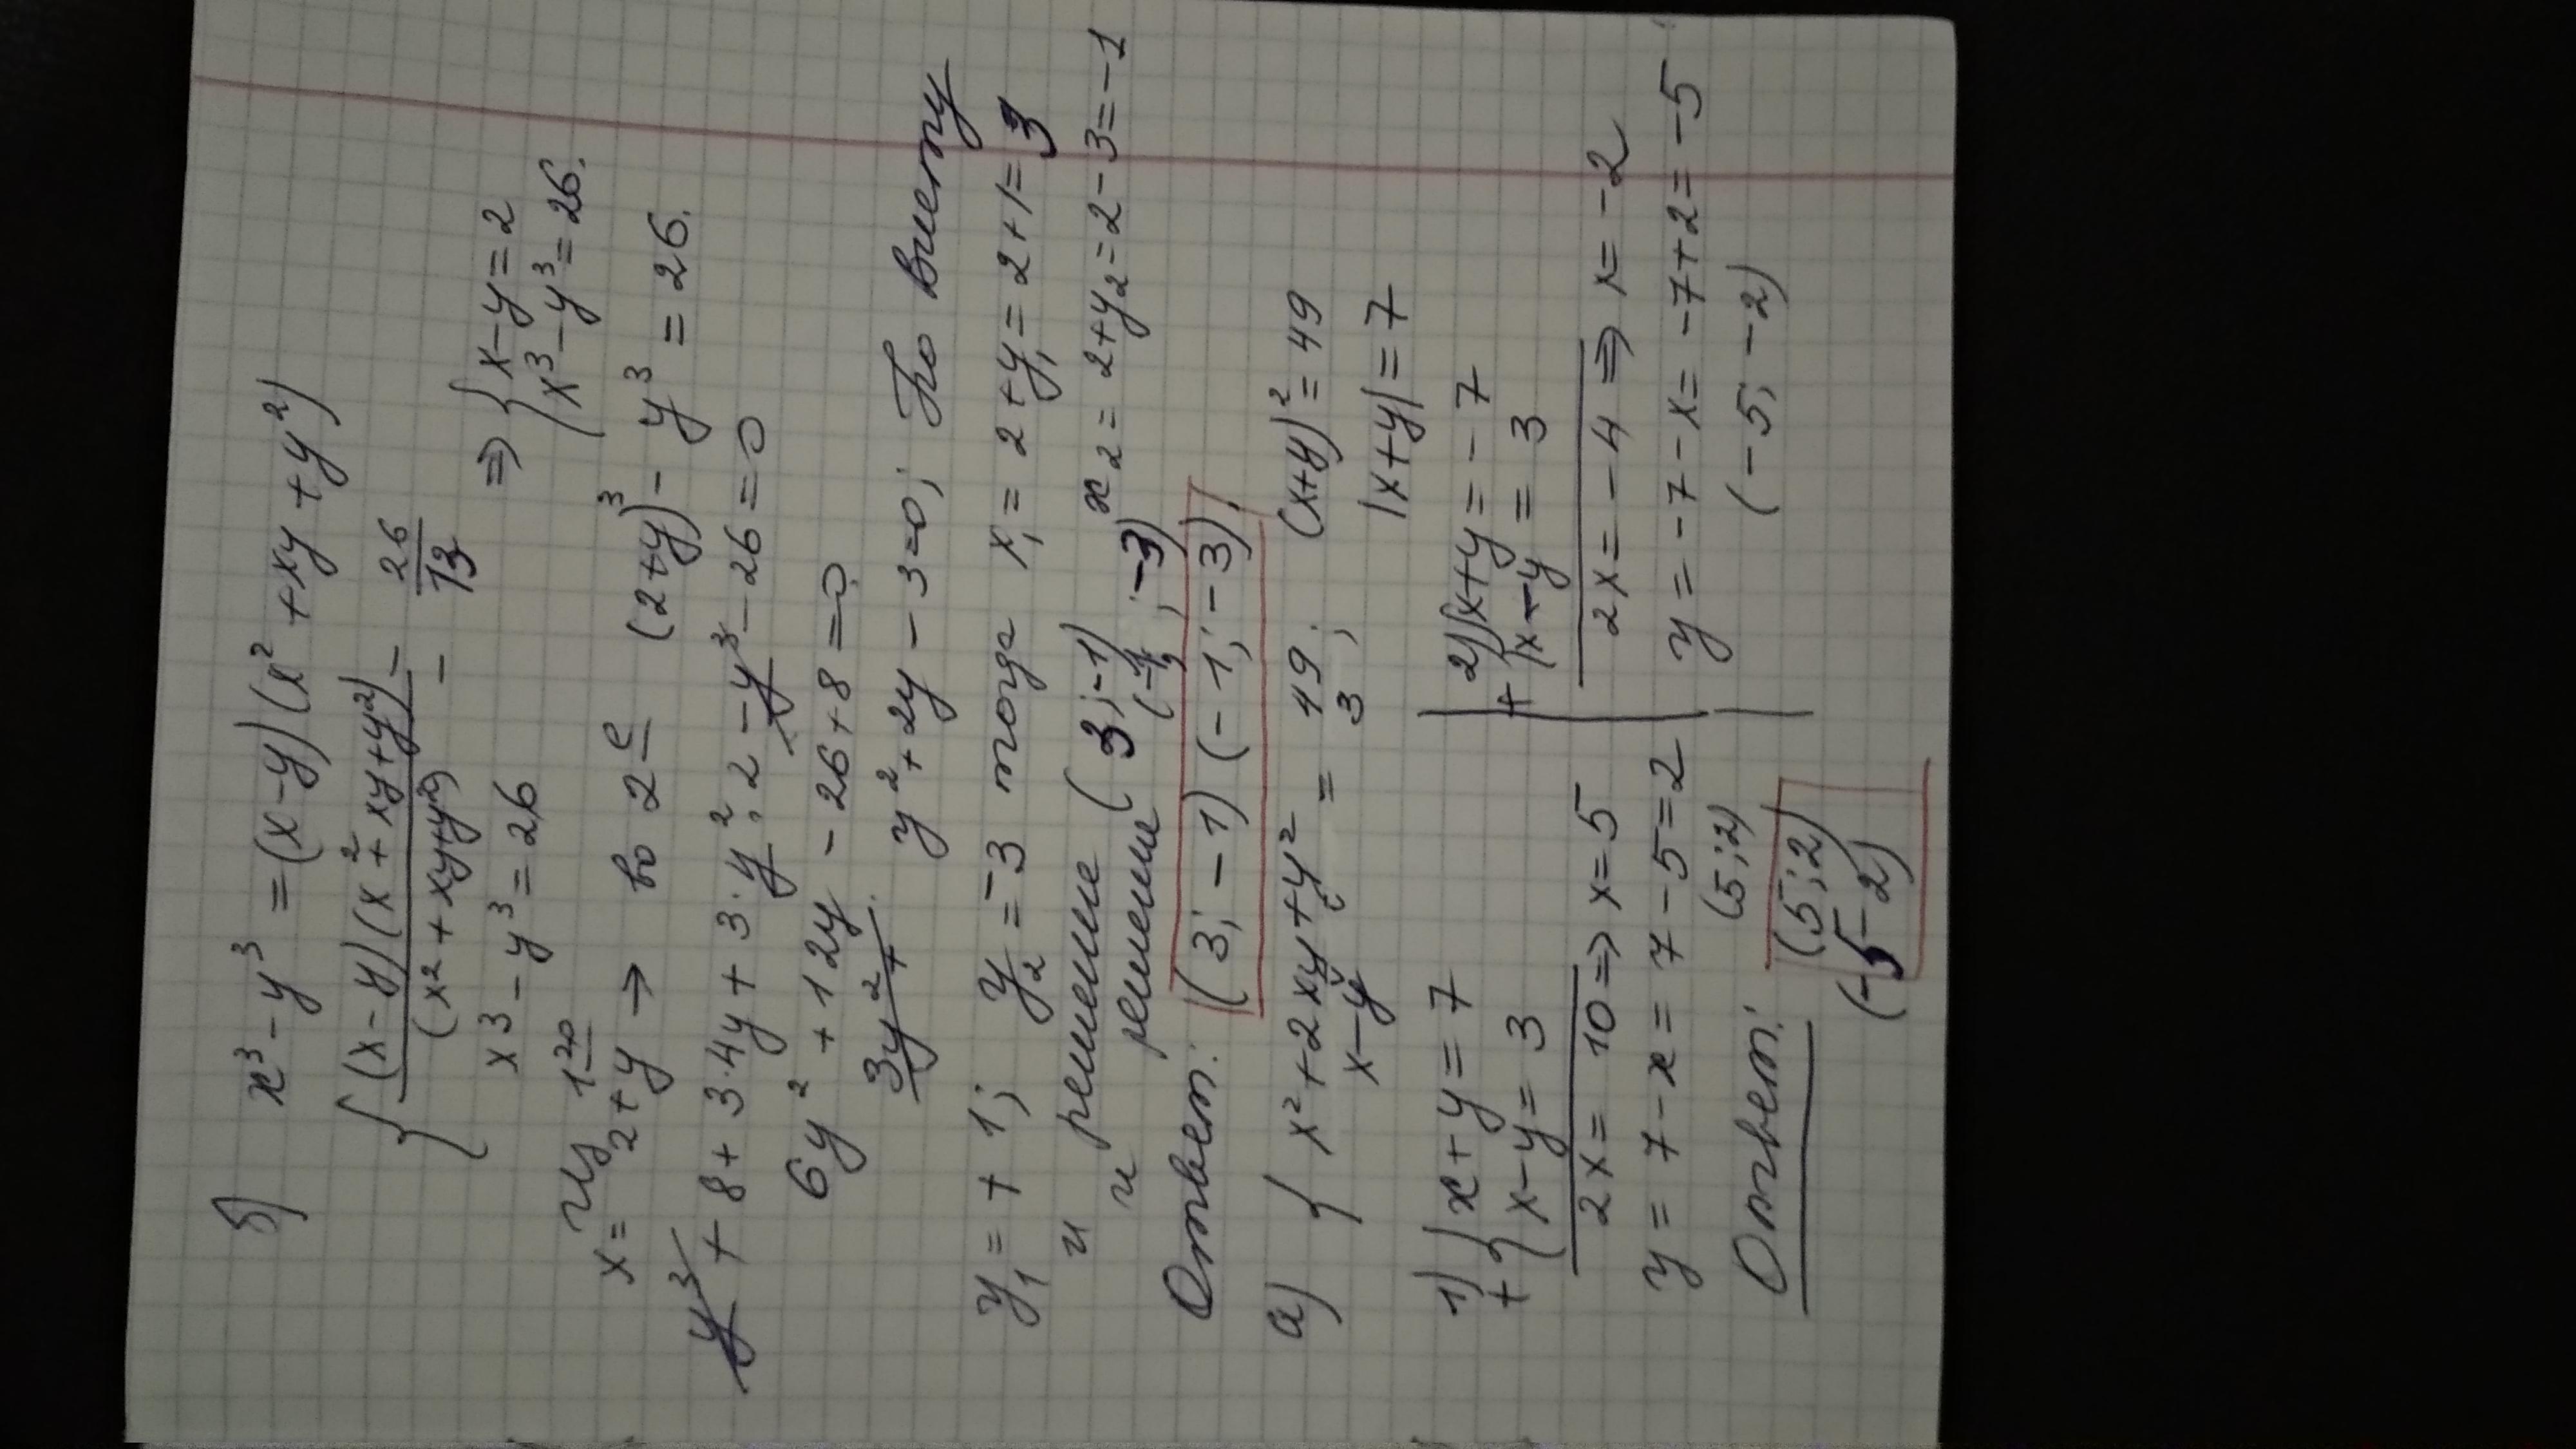 б) x³ - y³ = (x-y)(x² + xy + y²)
{ (x-y)(x²+xy+y²) / (x²+xy+y²) = 26/13
x³ - y³ = 26 ⇒ { x-y=2 x³-y³=26.
Из 1го
x = 2+y → во 2е (2+y)³ - y³ = 26.
y³ + 8 + 3·4y + 3·y²·2 - y³ - 26 = 0
6y² + 12y - 26 + 8 = 0.
3y² + y² + 2y - 3 = 0; По Виету
y₁ = +1; y₂ = -3 тогда x₁ = 2+y₁ = 2+1 = 3
и решение (3; -1) x₂ = 2+y₂ = 2-3 = -1
и решение (-1; -3)
Ответ: (3; -1) (-1; -3)
а) { x² + 2xy + y² = 49; (x+y)² = 49
x-y = 3; |x+y| = 7
1) + { x+y = 7 2) + { x+y = -7
x-y = 3 x-y = 3
2x = 10 ⇒ x=5 2x = -4 ⇒ x = -2
y = 7-x = 7-5=2 y = -7-x = -7+2 = -5
(5; 2) (-5; -2)
Ответ: (5; 2)
(-5 -2)